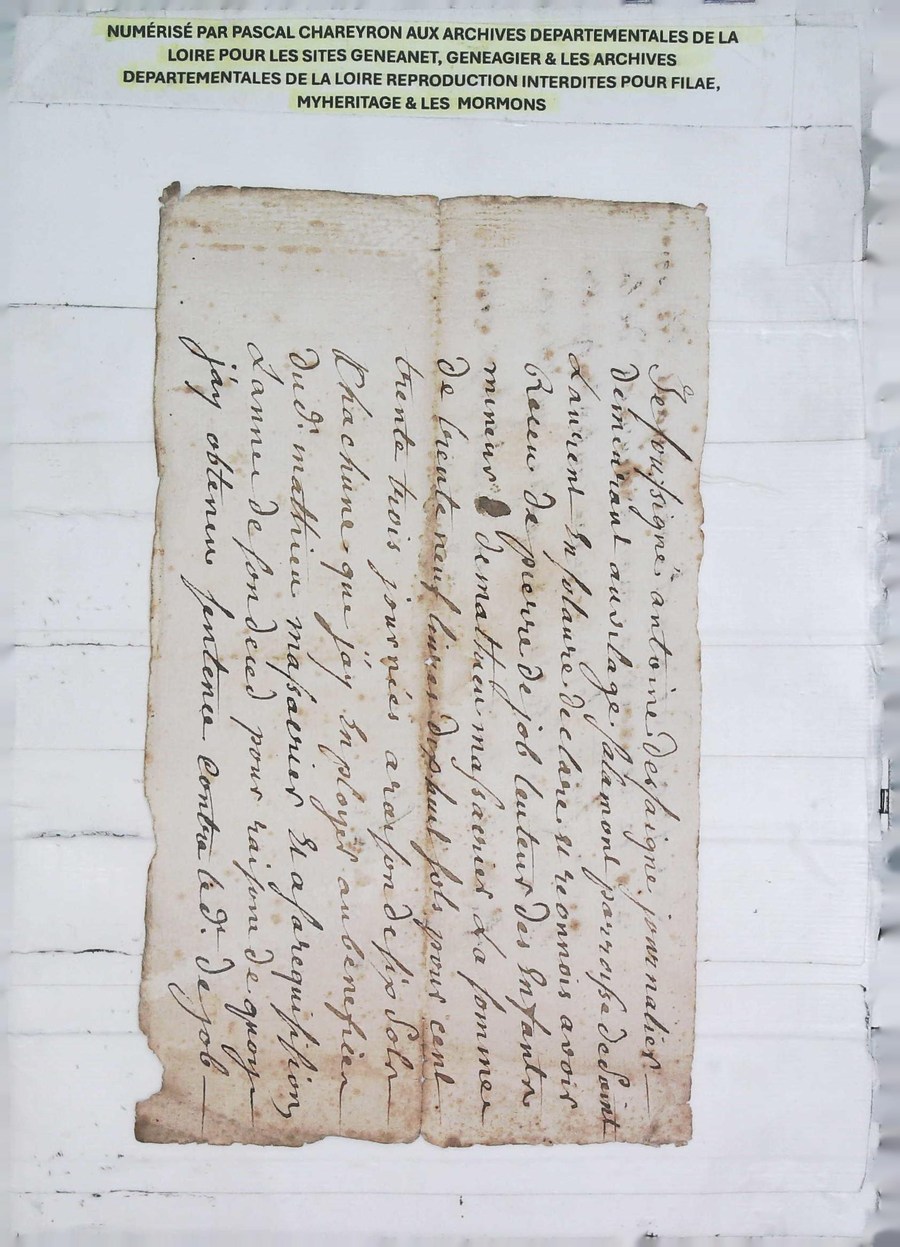 NUMÉRISÉ PAR PASCAL CHAREYRON AUX ARCHIVES DEPARTEMENTALES DE LA
LOIRE POUR LES SITES GENEANET, GENEAGIER & LES ARCHIVES
DEPARTEMENTALES DE LA LOIRE REPRODUCTION INTERDITES POUR FILAE,
MYHERITAGE & LES MORMONS
Je soussigné antoine desaigne journalier
demeurant au vilage salamont parroisse de Saint
Laurent En solaure declare et reconnois avoir
Receu de pierre de job tuteur des Enfants
mineur de mathieu massacrier La somme
de trente neuf livres dixhuit sols pour cent
trente trois journées a raison de six Sols
Chachune que j'ay Employés au benefice
dud. mathieu massacrier Et a sa requisition
L'année de son deced pour raison de quoy
j'ay obtenu sentence Contre led. de job